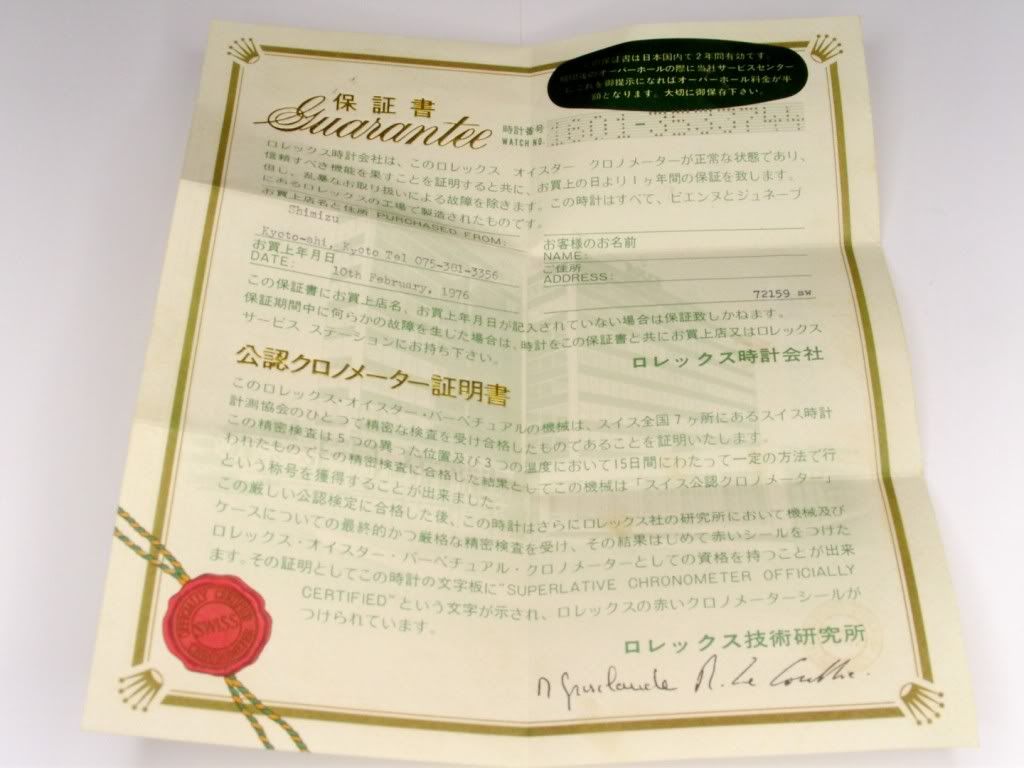 この保証書は日本国内で2年間有効です。
オーバーホールの際に当社サービスセンター
これを御提示になればオーバーホール料金が半
額となります。大切に御保存下さい。
保証書
Guarantee
時計番号
WATCH NO.
ロレックス時計会社は、このロレックス オイスター クロノメーターが正常な状態であり、
信頼すべき機能を果すことを証明すると共に、お買上の日より1ヶ年間の保証を致します。
但し、乱暴なお取り扱いによる故障を除きます。この時計はすべて、ビエンヌとジュネーブ
にあるロレックスの工場で製造されたものです。
お買上店名と住所 PURCHASED FROM:
Shimizu
Kyoto-shi, Kyoto Tel 075-381-3356
お買上年月日
DATE: 10th February, 1976
お客様のお名前
NAME:
ご住所
ADDRESS:
72159 sw
この保証書にお買上店名、お買上年月日が記入されていない場合は保証致しかねます。
保証期間中に何らかの故障を生じた場合は、時計をこの保証書と共にお買上店又はロレックス
サービス ステーションにお持ち下さい。
ロレックス時計会社
公認クロノメーター証明書
このロレックス・オイスター・パーペチュアルの機械は、スイス全国7ヶ所にあるスイス時計
計測協会のひとつで精密な検査を受け合格したものであることを証明いたします。
この精密検査は5つの異った位置及び3つの温度において15日間にわたって一定の方法で行
われたものでこの精密検査に合格した結果としてこの機械は「スイス公認クロノメーター」
という称号を獲得することが出来ました。
この厳しい公認検定に合格した後、この時計はさらにロレックス社の研究所において機械及び
ケースについての最終的かつ厳格な精密検査を受け、その結果はじめて赤いシールをつけた
ロレックス・オイスター・パーペチュアル・クロノメーターとしての資格を持つことが出来
ます。その証明としてこの時計の文字板に"SUPERLATIVE CHRONOMETER OFFICIALLY
CERTIFIED"という文字が示され、ロレックスの赤いクロノメーターシールが
つけられています。
ロレックス技術研究所
OFFICIALLY CERTIFIED
SWISS
CHRONOMETER